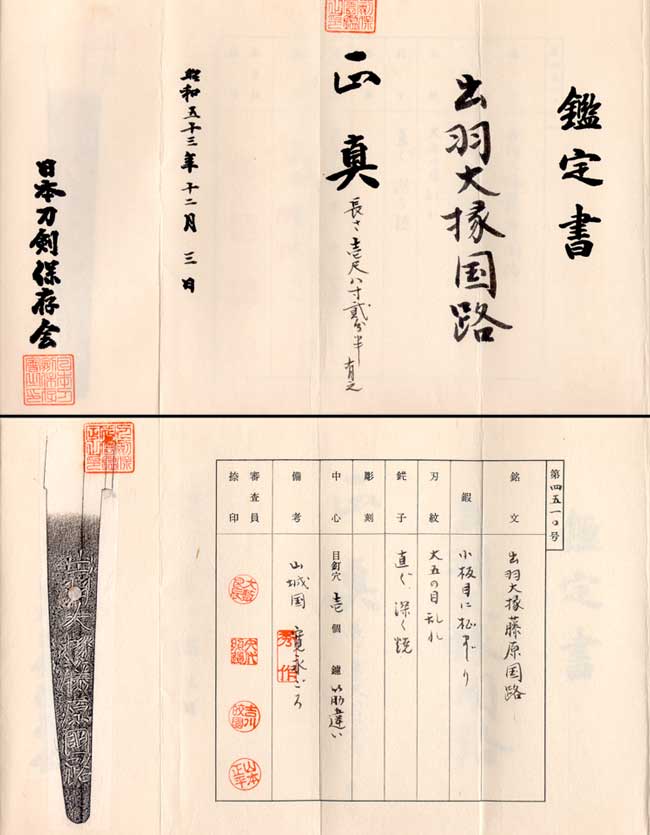 鑑定書
出羽大掾国路
正真
長さ壱尺八寸弐分半有之
昭和五十三年十二月三日
日本刀剣保存会
第四五一〇号
銘文 出羽大掾藤原国路
鍜 小板目に杢まじり
刃紋 大五の目乱れ
鋩子 直ぐ、深く焼
彫刻
中心 目釘穴 壱個 鑢 筋違い
備考 山城国 寛永ごろ
秀作
審査員捺印
山本
出羽大掾藤原国路